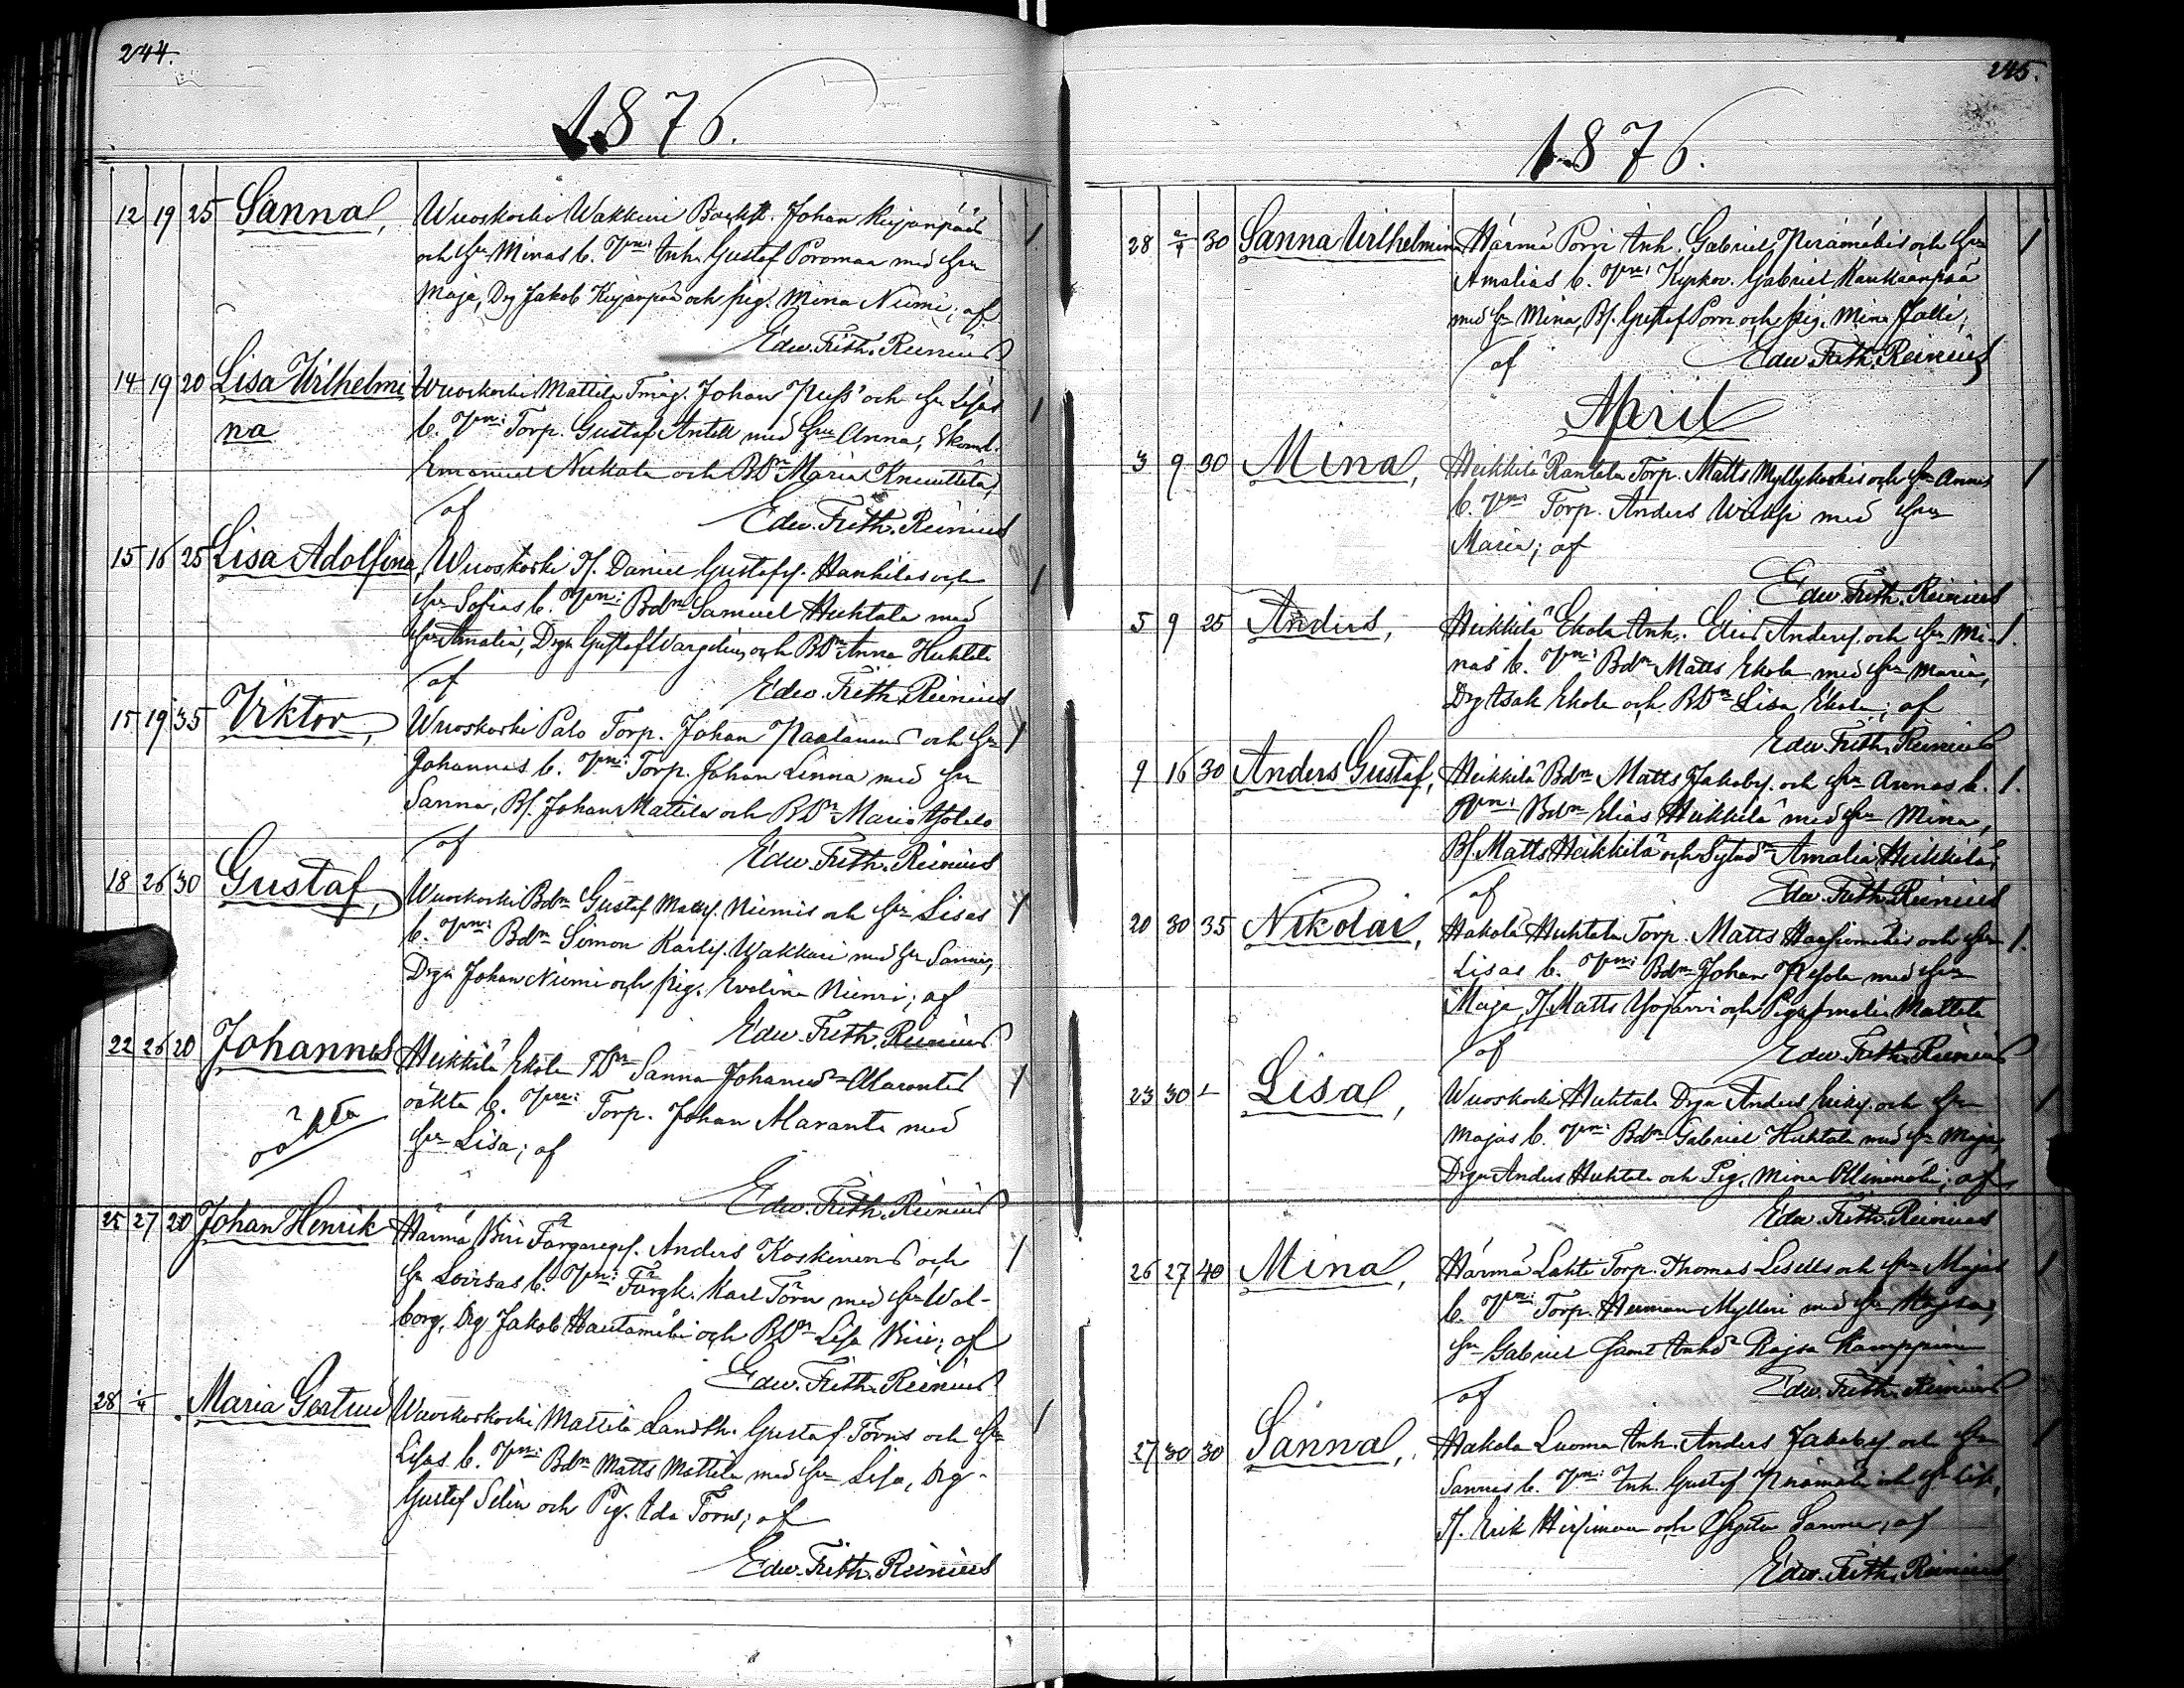 244.
1876.
12 19 25 Sanna, Wuoskoski Wakkuri Johan
och Hu Minas b. Vne: Inh. Gustaf Poromaa med Hu
Maja, Drg Jakob och pig. Mina Niemi; af
Edw. Frith. Reinius
14 19 20 Lisa Wilhelmi Wuoskoski Mattila Johan och Hu Lisas
na b. Vne: Torp. Gustaf Antell med Hu Anna,
Emanuel och BDr Maria Knuuttila,
af Edw. Frith. Reinius
15 16 25 Lisa Adolfina, Wuoskoski If. Daniel Gustafs. och
Hu Sofias b. Vne: Bdn Samuel Huhtala med
Hu Amalia, Drgn Gustaf och BDr Anna Huhtala
af Edw. Frith. Reinius
15 19 35 Viktor, Wuoskoski Palo Torp. Johan och Hu
Johannas b. Vne: Torp. Johan Linna med Hu
Sanna, Bs. Johan Mattila och BDr Maria
af Edw. Frith. Reinius
18 26 30 Gustaf, Wuoskoski Bdn Gustaf Matts. Niemis och Hu Lisas
b. Vne: Bdn Simon Karls. Wakkuri med Hu Sanna,
Drgn Johan Niemi och pig. Evelina Niemi; af
Edw. Frith. Reinius
22 26 20 Johannes Heikkilä Ekola Sanna Johansdr Marantas
oäkta b. Vne: Torp. Johan Maranta med
oäkta Hu Lisa; af
Edw. Frith. Reinius
25 27 20 Johan Henrik Härmä Biri Anders Koskinens och
Hu Lovisas b. Vne: Färgk. Karl Törn med Hu Wal-
borg, Drg Jakob Hautamäki och BDr Lisa Biri; af
Edw. Frith. Reinius
28 Maria Gertrud Wuoskoski Mattila Landth. Gustaf Törns och Hu
Lisas b. Vne: Bdn Matts Mattila med Hu Lisa, Drg
Gustaf Selin och Pig. Ida Törns; af
Edw. Frith. Reinius
245.
1876.
28 2/4 30 Sanna Wilhelmina Härmä Porri Inh. Gabriel och Hu
Amalias b. Vne: Kyrkov. Gabriel Kaukaanpää
med Hu Mina, Bs. Gustaf Porri och pig. Mina Jalli,
af Edw. Frith. Reinius
April
3 9 30 Mina, Heikkilä Rantala Torp. Matts Myllykoskis och Hu Annas
b. Vne: Torp. Anders med Hu
Maria; af
Edw. Frith. Reinius
5 9 25 Anders, Heikkilä Ekola Inh. Elias Anders. och Hu Mi-
nas b. Vne: Bdn Matts Ekola med Hu Maria,
Drg Isak Ekola och BDr Lisa Ekola; af
Edw. Frith. Reinius
9 16 30 Anders Gustaf, Heikkilä Bdn Matts Jakobs. och Hu Annas b.
Vne: Bdn Elias Heikkilä med Hu Mina,
Bs. Matts Heikkilä och Amalia Heikkilä,
af Edw. Frith. Reinius
20 30 35 Nikolai, Hakola Huhtala Torp. Matts och Hu
Lisas b. Vne: Bdn Johan med Hu
Maja, If. Matts Yojärvi och Pig. Amalia Mattila
af Edw. Frith. Reinius
23 30 Lisa, Wuoskoski Huhtala Drgn Anders Eriks. och Hu
Majas b. Vne: Bdn Gabriel Huhtala med Hu Maja,
Drgn Anders Huhtala och Pig. Mina af
Edw. Frith. Reinius
26 27 40 Mina, Härmä Lahti Torp. Thomas Lisells och Hu Majas
b. Vne: Torp. Herman Mylleri med Hu Kajsa,
Gabriel samt Kajsa Kamppinen
af Edw. Frith. Reinius
27 30 30 Sanna, Hakola Luoma Inh. Anders Jakobs. och Hu
Sannas b. Vne: Inh. Gustaf och Hu Lisa,
If. Erik och Sanna; af
Edw. Frith. Reinius